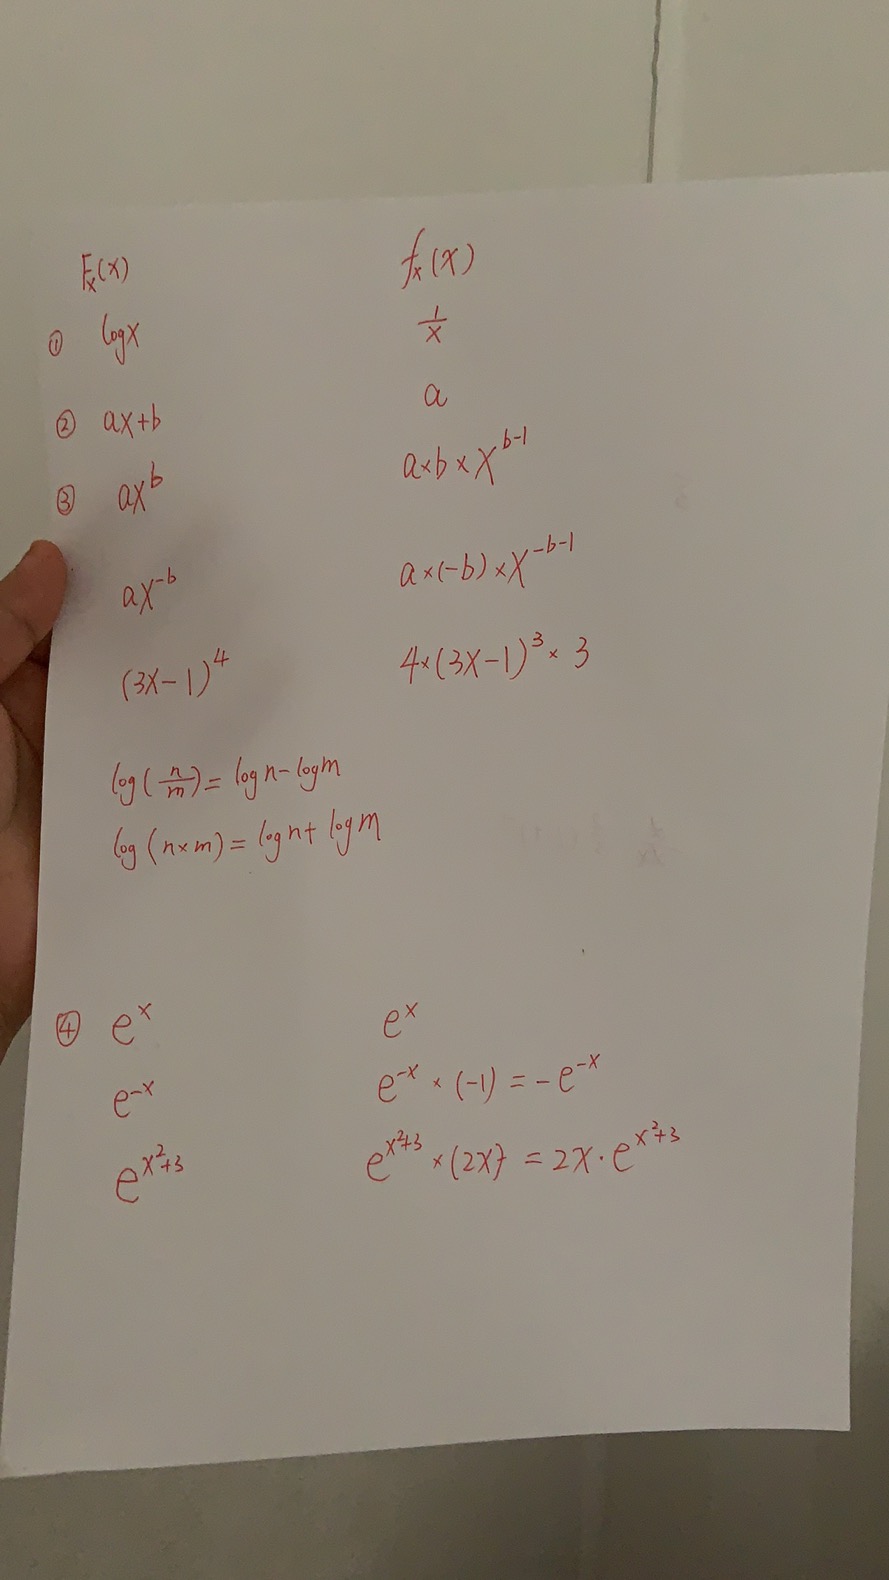 Fx(x) fx(x)
① logx 1/x
② ax+b a
③ ax^b a×b×x^(b-1)
ax^(-b) a×(-b)×x^(-b-1)
(3x-1)^4 4×(3x-1)^3×3
log(n/m)=logn-logm
log(n×m)=logn+logm
④ e^x e^x
e^(-x) e^(-x)×(-1)=-e^(-x)
e^(x^2+3) e^(x^2+3)×(2x)=2x·e^(x^2+3)